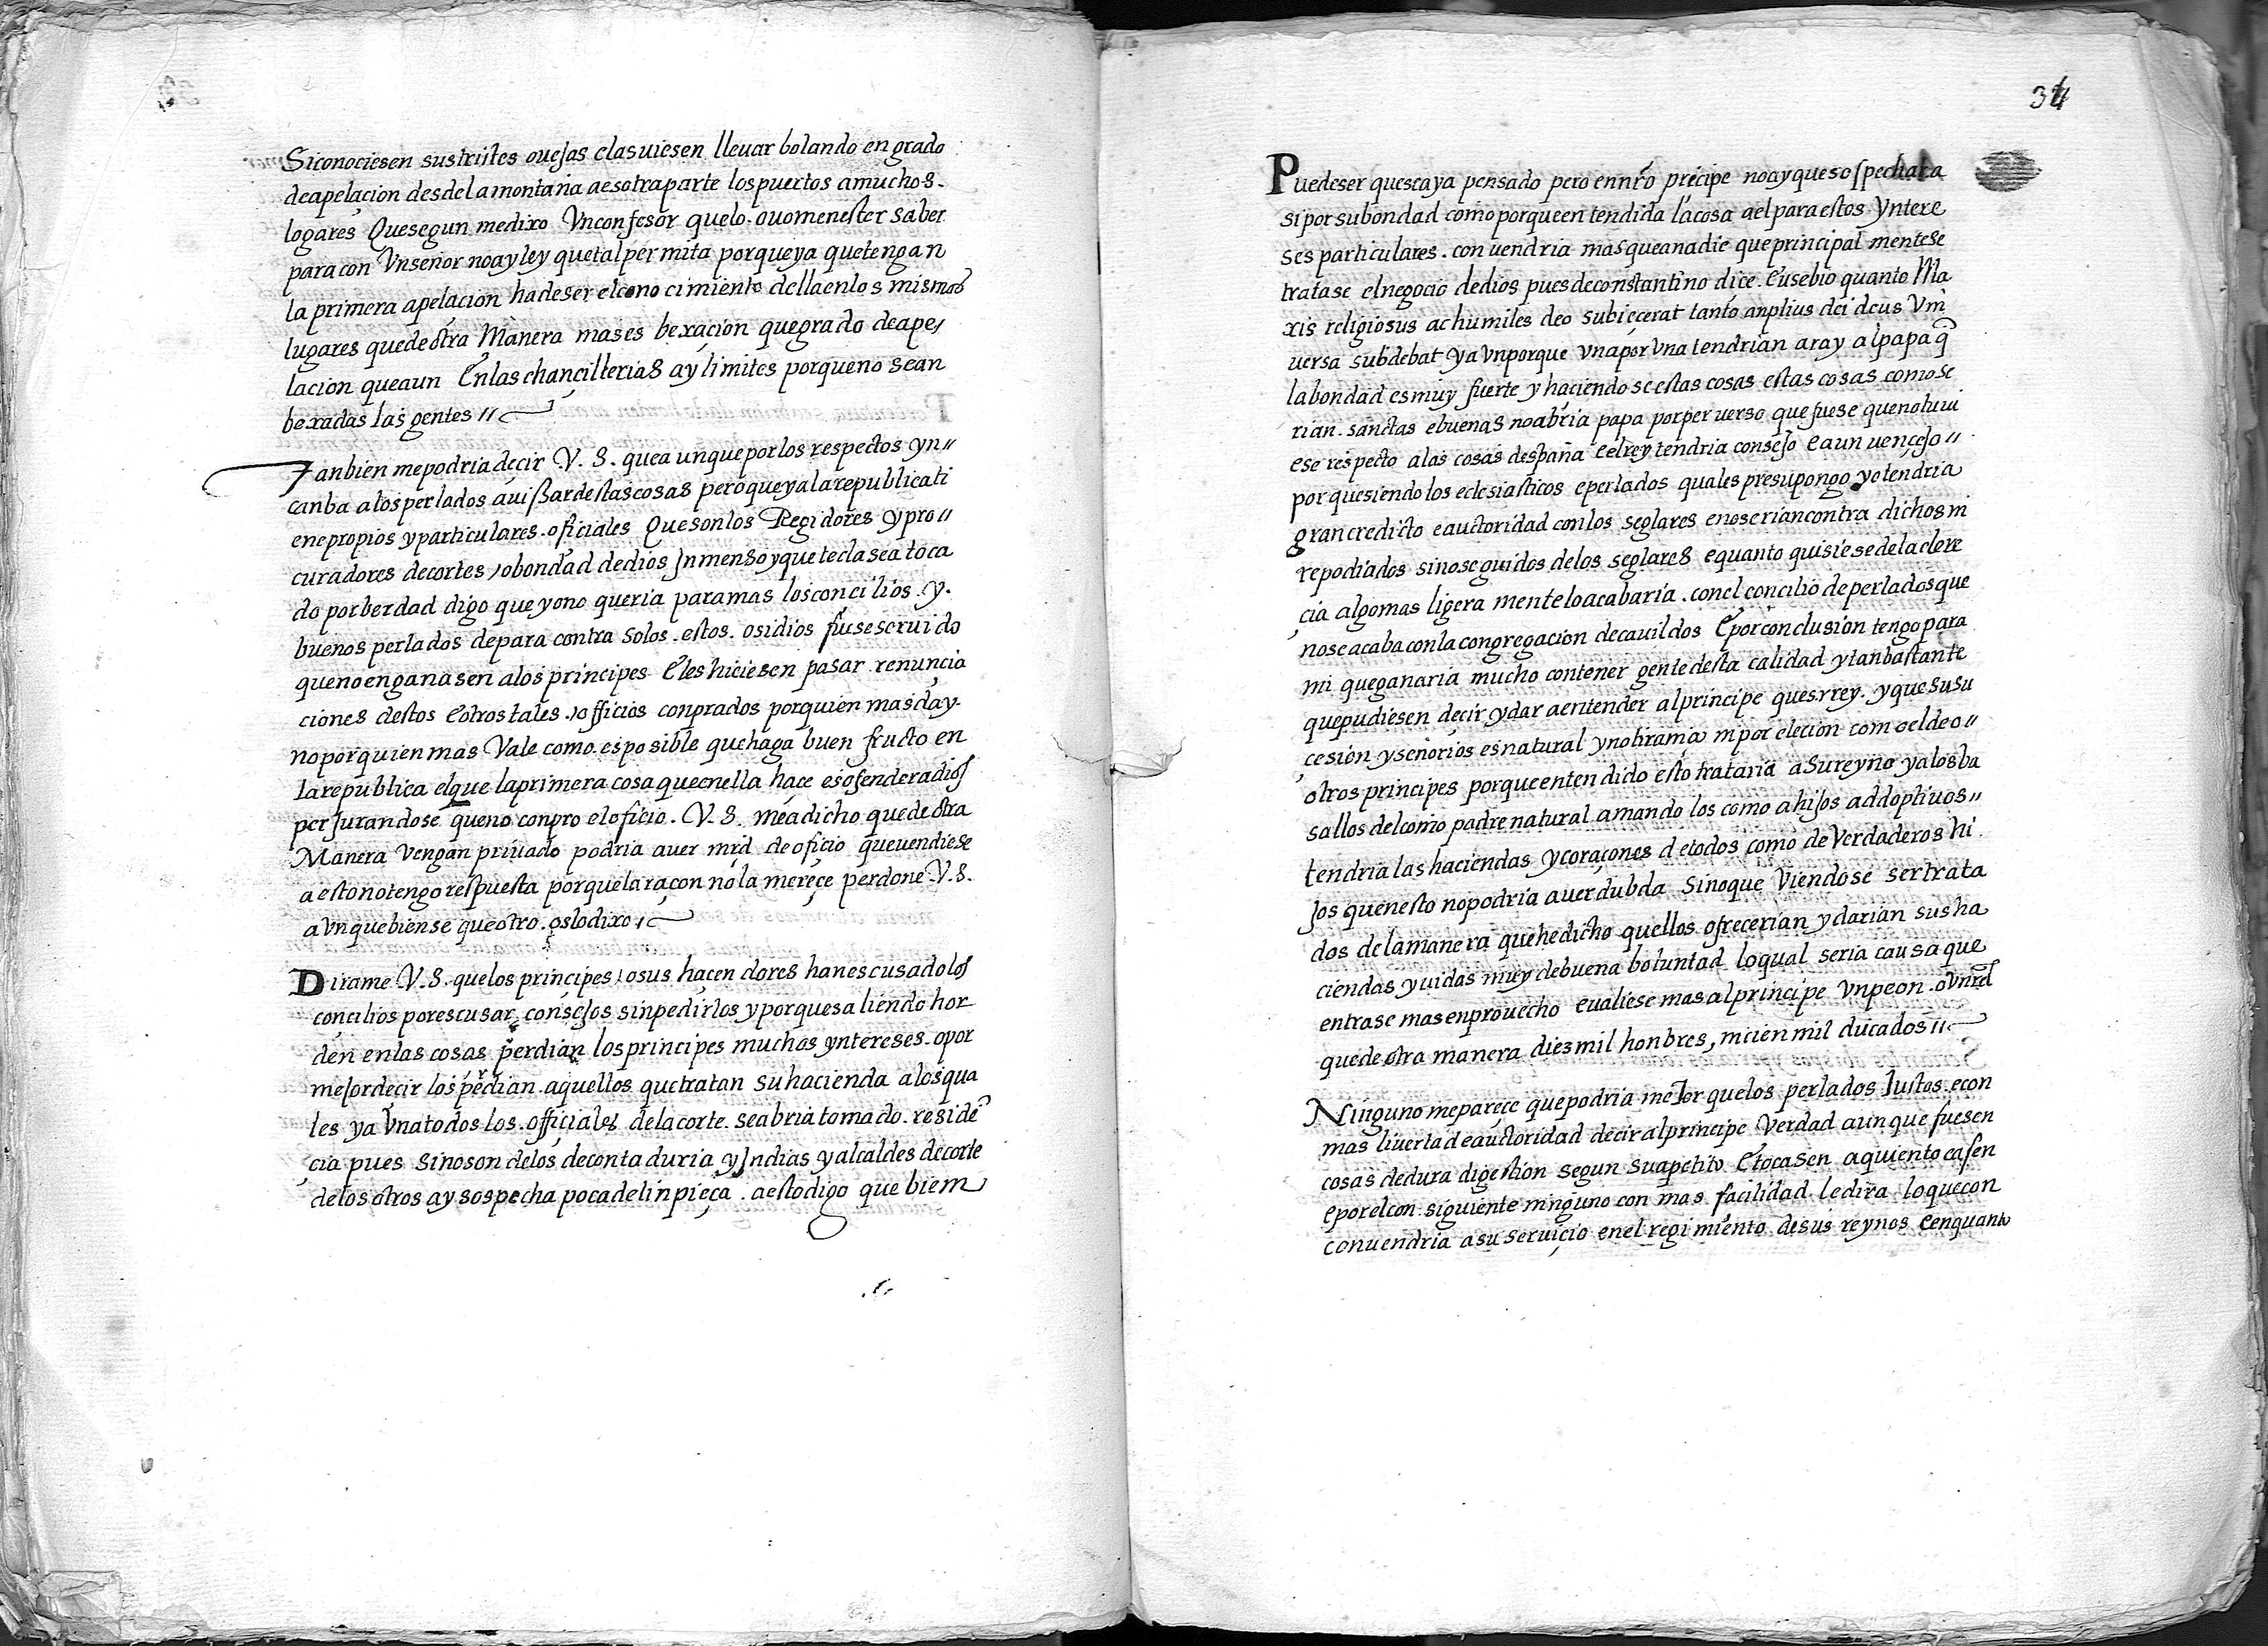 Siconociesen sustristes ouejas elasuiesen lleuar bolando en grado
deapelacion desdelamontaña aesotraparte lospuertos amuchos.
logares Quesegun medixo Vnconfesor quelo. ouomenester saber
paracon Vnseñor noayley quetalpermita porqueya quetengan
la primera apelacion hadeser elconocimiento dellaenlos mismos
lugares quedeotra Manera mases bexacion quegrado deape/
lacion queaun Enlaschancillerias ay limites porqueno sean
bexadas las gentes //
Tanbien mepodria deçir V. S. quea unqueporlos respectos yn//
canba alosperlados auißardestascosas peroqueyalarepublicati
enepropios yparticulares. oficiales Quesonlos Regidores ypro//
curadores decortes, obondad dedios Jnmenso yque teclasea toca
do porberdad digo que yono queria paramas losconcilios. y.
buenos perlados depara contra solos. estos. osidios fuese seruido
quenoenganasen alos principes Eles hiciesen pasar renuncia
ciones destos Eotros tales. officios conprados porquien masday.
noporquien mas Vale como. esposible quehaga buen fructo en
larepublica elque laprimera cosa queenella hace esofenderadios
perJurandose queno conpro eloficio. V. S. meadicho quedeotra
Manera Vengan priuado podria auer mrd de oficio queuendiese
aestonotengo respuesta porquelaraçon nola mereçe perdone. V. S.
aVnquebiense queotro. oslodixo
Dirame V. S. quelos principes, osus haçen dores hanescusadolos
concilios porescusar consejos sinpedirlos yporquesaliendo hor
den enlas cosas perdian losprincipes muchos yntereses. opor
mejordecir los perdian. aquellos quetratan suhacienda alosqua
les ya Vnatodos los. officiales delacorte. seabria tomado. reside͂
cia pues sinoson delos decontaduria yJndias yalcaldes decorte
delosotros aysospecha pocadelinpieça. aestodigo que biem
34
Puedeser queseaya pensado pero ennro͂ precipe noayquesospechara
siporsubondad comoporqueentendida lacosa aelparaestos yntere
ses particulares. conuendria masqueanadie queprincipal mentese
tratase elnegocio dedios puesdeconstantino dice. Eusebio quanto Ma
xis religiosus achumiles deo subiecerat tanto anplius dei deus Vni
uersa subdebat yaVnporque Vnapor Vna tendrian aray alpapa q͂
labondad esmuy fuerte yhaciendo seestas cosas estas cosas comose
rian. sanctas ebuenas noabria papa porperuerso quefuese quenotuui
ese respecto alas cosas despaña eelrey tendria consejo eaun uencejo//
porquesiendo los eclesiasticos eperlados quales presupongo yotendria
grancredicto eauctoridad conlos seglares enoseriancontra dichosni
repodiados sinoseguidos delos seglares equanto quisiesedelaclere
cia algomas ligera menteloacabaria. conel concilio deperladosque
noseacaba conla congregacion decauildos Eporconclusion tengo para
mi queganaria mucho contener gentedesta calidad ytanbastante
quepudiesen decir ydar aentender alprincipe quesrrey. yquesusu
cesion yseñorios esnatural ynotirama nipor elecion comoeldeo//
otros principes porqueentendido esto trataria asureyno yalosba
sallos delcomo padrenatural amando los como ahijos addoptiuos//
tendria las haciendas ycoraçones detodos como deVerdaderos hi
Jos quenesto nopodria auerdubda sinoque Viendose sertrata
dos delamanera quehedicho quellos ofrecerian ydarian susha
ciendas yuidas muy debuena boluntad loqual seria causa que
entrase masenprouecho eualiese mas alprincipe Vnpeon. oVnrel
quede otra manera diesmil honbres, nicien mil ducados //
Ninguno mepareçe quepodria meJor quelos perlados Justos. econ
mas liuertadeauctoridad deciralprincipe Verdad aunque fuesen
cosas dedura digestion segun suapetito Etocasen aquientocasen
eporelcon siguiente ninguno con mas facilidad. ledira loquecon
conuendria asu seruicio enel regimiento desus reynos eenquanto